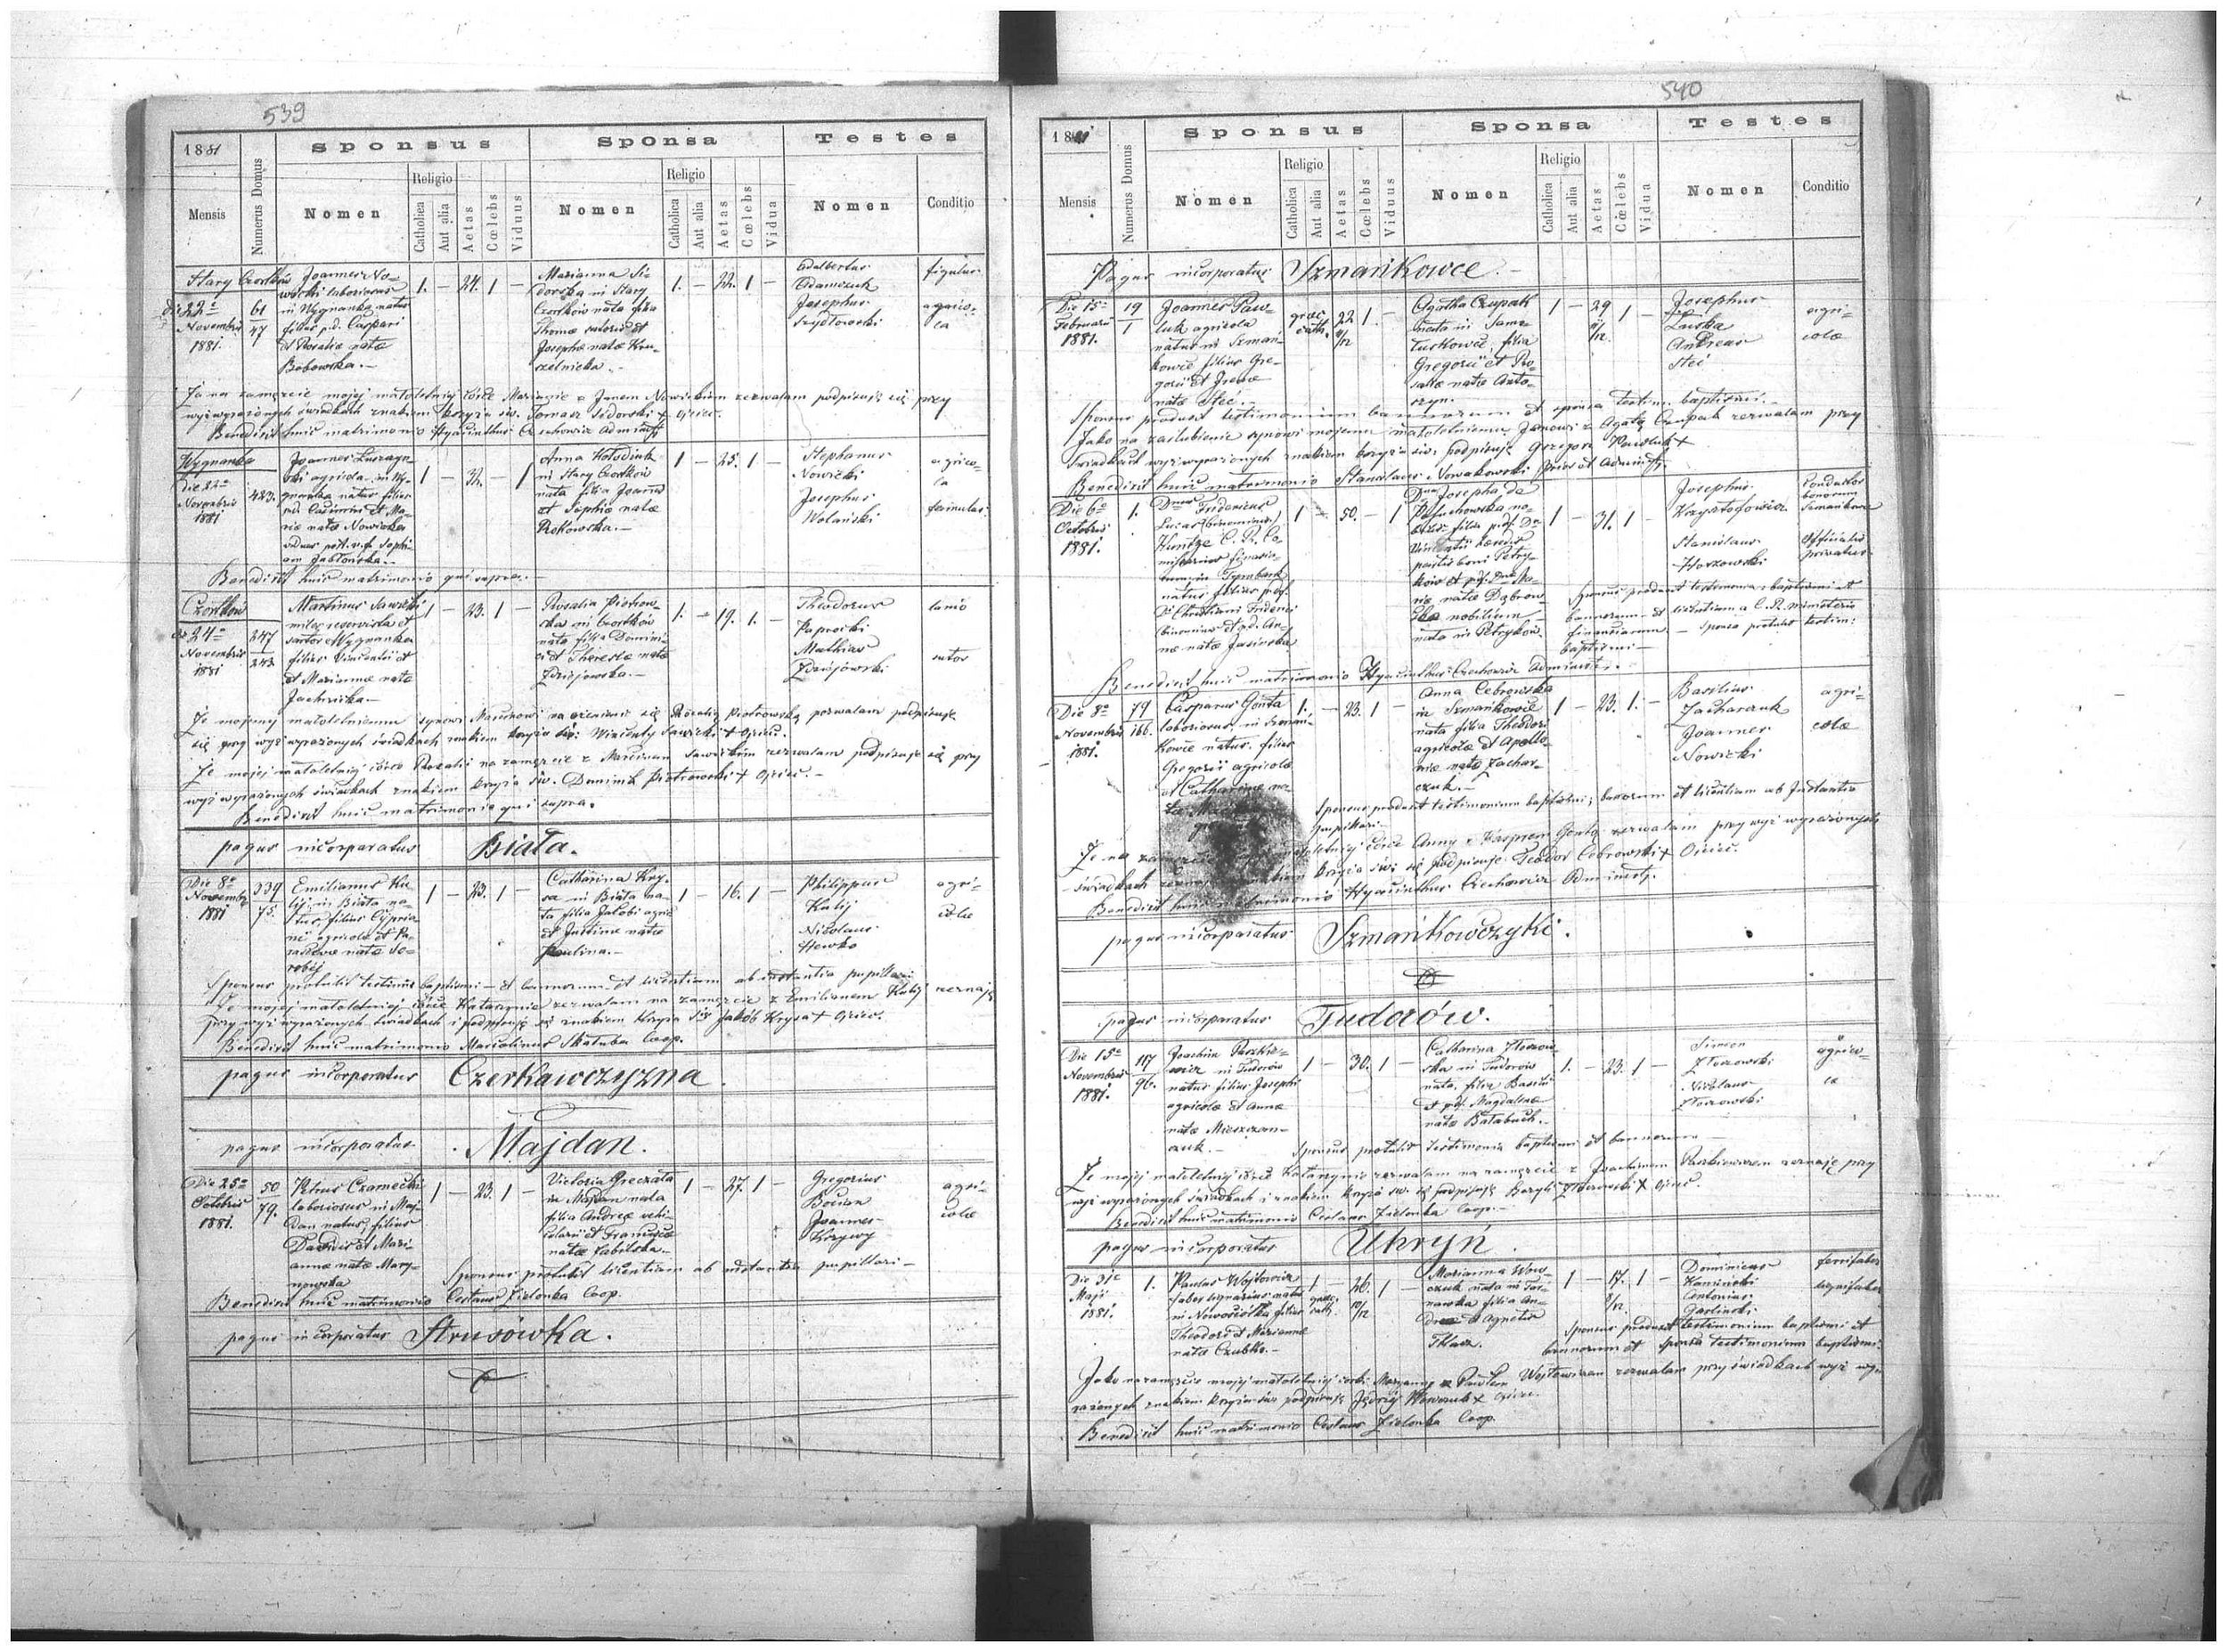 539
1881
Sponsus
Sponsa
Testes
Mensis
Numerus Domus
Nomen
Religio
Catholica
Aut alia
Aetas
Cœlebs
Viduus
Nomen
Religio
Catholica
Aut alia
Aetas
Cœlebs
Vidua
Nomen
Conditio
Stary Czortków
die 22ª
Novembris
1881.
61
47
Joannes No-
wicki laboriosus
in Wygnanka natus
filius p.d. Caspari
et Rosaliæ natæ
Bobowska.—
1. — 24. 1 —
Marianna Si-
dorska in Stary
Czortków nata filia
Thomæ sutoris et
Josephæ natæ Kru-
szelnicka.—
1. — 22. 1 —
Adalbertus
Adamczuk
Josephus
Szydłowski
figulus
agrico-
la
Ja na zamęzcie mojéj małoletniéj córki Maryannie z Janem Nowickim zezwalam podpisuję się przy
wyż wyrażonych świadkach znakiem krzyża św. Tomasz Sidorski + Ojciec.
Benedixit huic matrimonio Hyacinthus Czechowicz Administ
Wygnanka
Die 22ª
Novembris
1881
423.
gnanka natus filius
p.d. Casimiri et Ma-
riæ natæ Nowicka
viduus post. p.d. Sophi-
am Jabłońska.—
1 — 32. — 1
Anna Hołodiuk
in Stary Czortków
nata filia Joannis
et Sophiæ natæ
Rokowska.—
1 — 25. 1 —
Stephanus
Nowicki
Josephus
Wolański
agrico-
la
famulus
Benedixit huic matrimonio qui supra.—
Czortków
24ª
Novembris
1881
247
243
Martinus Sawicki
miles reservista et
sartor Wygnanka
filius Vincentii et
et Mariannæ natæ
Jachnicka.—
1 — 23. 1 —
Rosalia Piotrow-
ska in Czortków
nata filia Domini-
ci et Theresiæ natæ
Zdziejowska.—
1. — 19. 1. —
Theodorus
Paprocki
Mathias
Zdziejowski
lanio
sutor
Że mojemu małoletniemu synowi Marcinowi na ożenienie się Rozalią Piotrowską pozwalam podpisuję
się przy wyż wyrażonych świadkach znakiem krzyża św. Wincenty Sawicki + Ojciec.
Że mojej małoletniéj córce Rozalii na zamęzcie z Marcinem Sawickim zezwalam podpisuję się przy
wyż wyrażonych świadkach znakiem krzyża św. Dominik Piotrowski + Ojciec.—
Benedixit huic matrimonio qui supra.
pagus incorporatus Biała.
Die 8ª
Novembr
1881
239
75.
Emilianus Ku-
lij in Biała na-
tus filius Cypria-
ni agricolæ et Pa-
rasceviæ natæ So-
robij
1 — 23. 1 —
Catharina Kry-
sa in Biała na-
ta filia Jacobi agric
et Justinæ natæ
Paulina.—
1 — 16. 1 —
Philippus
Kulij
Nicolaus
Hewko
agri-
colæ
Sponsus protulit testim: baptismi — et bannorum et licentiam ab instantia pupillari
Że mojej małoletniej córce Katarzynie zezwalam na zamęzcie z Emilianem Kulij zeznaję
przy wyż wyrażonych świadkach i podpisuję się znakiem krzyża św. Jakób Krysa + Ojciec.
Benedixit huic matrimonio Marcolinus Skałuba Coop.
pagus incorporatus Czerkawczyzna.
pagus incorporatus Majdan.
Die 25ª
Octobris
1881.
50
79.
Petrus Czarnecki
laboriosus in Maj-
dan natus filius
Davidis et Mari-
annæ natæ Mary-
nowska
1 — 23. 1 —
Victoria Greczała
in Majdan nata
filia Andreæ
et Franciscæ
natæ
1 — 27. 1 —
Gregorius
Bocian
Joannes
Krzywy
agri-
colæ
Sponsus protulit licentiam ab instantia pupillari —
Benedixit huic matrimonio Ceslaus Zielonka Coop.
pagus incorporatus Strusówka.
540
1881
Sponsus
Sponsa
Testes
Mensis
Numerus Domus
Nomen
Religio
Catholica
Aut alia
Aetas
Cœlebs
Viduus
Nomen
Religio
Catholica
Aut alia
Aetas
Cœlebs
Vidua
Nomen
Conditio
Pagus incorporatus Szmańkowce.—
Die 15ª
Februarii
1881.
19
1
Joannes Paw-
luk agricola
natus in Szmań-
kowce filius Gre-
gorii et Irenæ
natæ Steć.—
græc
cath.
22 1. —
Agatha Czupak
nata in
filia
Gregorii et Ro-
saliæ natæ Anto-
szyn.—
1 — 29 1 —
Josephus
Luska
Andreas
Steć
agri-
colæ
Sponsus produxit testimonium bannorum et sponsa testim. baptismi.—
Jako na zaślubienie synowi mojemu małoletniemu Janowi z Agatą Czupak zezwalam przy
świadkach wyż wyrażonych znakiem krzyża św. podpisuję Grzegorz Pawluk +
Benedixit huic matrimonio Stanislaus Nowakowski Prior et Administ.
Die 6ª
Octobris
1881.
1.
Dnus Fridericus
Lucas (binominus)
Kuntze C. R. Co-
missarius
natus filius p.d.
Dī Christiani Friderici
binominis et p.d. An-
næ natæ Jasińska
1 — 50. — 1
Dna Josepha de
1 — 31. 1 —
riæ natæ Dąbrow-
ska nobilium
nata in Petryków
Josephus
Krzysztofowicz
Stanislaus
Horzowski
Conductor
bonorum
Szmańkowce
Officialis
privatus
Sponsus produxit testimonium baptismi et
bannorum et licentiam a C. R. ministerio
financiarum — Sponsa protulit testim:
baptismi —
Benedixit huic matrimonio Hyacinthus Czechowicz Administ.
Die 8ª
Novembris
1881.
79
166.
Casparus Gonta
laboriosus in Szmań-
kowce natus filius
Gregorii agricolæ
et Catharinæ na-
1. — 23. 1 —
Anna Cebrowska
in Szmańkowce
nata filia Theodori
agricolæ et Apollo-
niæ natæ Zachar-
czuk.—
1 — 23. 1. —
Basilius
Zacharczuk
Joannes
Nowicki
agri-
colæ
Sponsus produxit testimonium baptismi; bannorum et licentiam ab Instantia
pupillari.—
Że na małoletniéj córce Anny z Kasprem Gontą zezwalam przy wyż wyrażonych
świadkach znakiem krzyża św. się podpisuję Teodor Cebrowski + Ojciec.
Benedixit huic matrimonio Hyacinthus Czechowicz Administ.
pagus incorporatus Szmańkowczyki.
pagus incorporatus Tudorów.
Die 15ª
Novembris
1881.
117
96.
Joachim Paszkie-
wicz in Tudorów
natus filius Josephi
agricolæ et Annæ
natæ Mieszczan-
czuk.—
1 — 30. 1 —
Catharina Złozow-
ska in Tudorów
nata filia Basilii
et p.d. Magdalenæ
natæ Bałabuch.—
1. — 23. 1 —
Simon
Złozowski
Nicolaus
Złozowski
agrico-
læ
Sponsus protulit testimonia baptismi et bannorum —
Że mojéj małoletniéj córce Katarzynie zezwalam na zamęzcie z Joachimem Paszkiewiczem zeznaję przy
wyż wyrażonych świadkach i znakiem krzyża św. się podpisuję Bazyli Złozowski + Ojciec
Benedixit huic matrimonio Ceslaus Zielonka Coop.—
pagus incorporatus Uhryń.
Die 31ª
Maji
1881.
1.
Paulus Wojtowicz
faber lignarius natus
in Nowosiółka filius
Theodori et Mariannæ
natæ Czubko.—
1 —
græc.
cath.
26. 1
10/12
Marianna Wow-
czuk nata in
filia An-
dreæ et Agnetis
Tkacz.
1 — 17. 1 —
8/12.
Dominicus
Kaminski
Antonius
Garlinski
ferrifaber
lignifaber
Sponsus produxit testimonium baptismi et
bannorum et sponsa testimonium baptismi.
Jako na zamęzcie mojéj małoletniéj córki Maryanny z Pawłem Wojtowiczem zezwalam przy świadkach wyż wy-
rażonych znakiem krzyża św. podpisuję Jędrzéj Wowczuk + ojciec
Benedixit huic matrimonio Ceslaus Zielonka Coop.